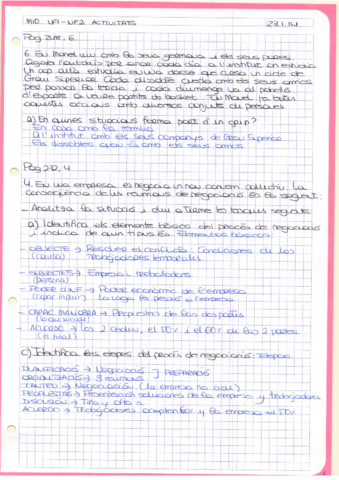 M10 UF1-NF2 ACTIVITATS 23.1.14
Pàg 201, 6.
6. En Manel viu amb la seva germana i els seus pares.
cada dia a l'institut on estudia
Un cop allà estudia en una classe que cursa un cicle de
Grau Superior. Cada dissabte queda amb els seus amics
per passar la tarda i cada diumenge va al pabelló
d'esports a veure partits de basket. En Manel
aquestes ocasions amb diversos conjunts de persones
a) En quines situacions forma part d'un grup?
En casa amb la família
A l'institut amb els seus companys de Grau Superior
Els dissabtes quan va amb els seus amics
Pàg 212, 4
4. En una empresa es negocia un nou conveni col·lectiu. La
conseqüència de les reunions de negociació és la següent:
- Analitza la situació i duu a terme les tasques següents:
a) Identifica els elements bàsics del procés de negociació
i indica de quin tipus és. Elements bàsics:
- OBJECTE → Resoldre el conflicte: Condicions de los
(causa) Trabajadores temporales
- SUBJECTES → Empresa i treballadors
(persona)
- PODER D'INF → Poder economic de l'empresa
(capac influir) La vaga fa pressió a l'empresa
- CAPAC MANIOBRA → Propostes de les dos parts
- ACORD → Los 2 ceden, el 50% i el 60% de las 2 partes
(el final)
c) Identifica les etapes del procés de negociació: Etapas
PLANIFICACIÓ → Negociació ] PREPARACIÓ
ORGANITZACIÓ → 3 reunions
TANTEO → Negociación (la empresa no cede)
PROPUESTAS → Presentación soluciones de la empresa y trabajadores
DISCUSIÓN → Tira y afloja
ACUERDO → Trabajadores aceptan y la empresa el 50%.